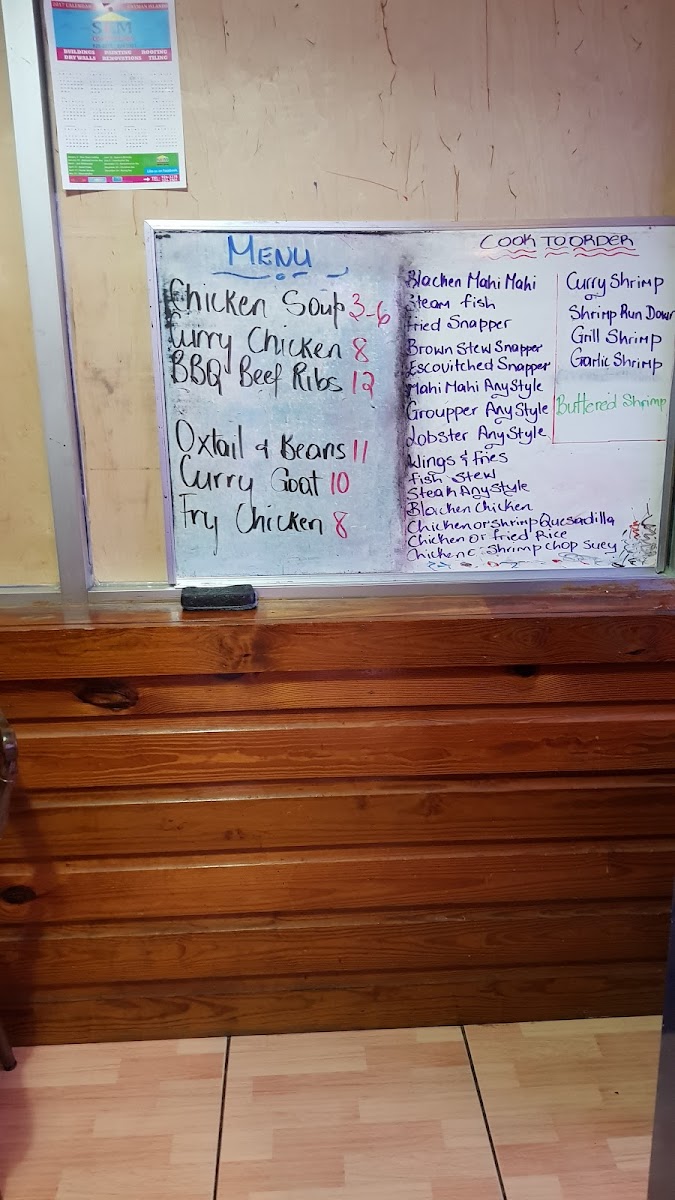 2017 CALENDAR
CAYMAN ISLANDS
BUILDINGS PAINTING ROOFING
DRY WALLS RENOVATIONS TILING
MENU
Chicken Soup 3-6
Curry Chicken 8
BBQ Beef Ribs 12
Oxtail & Beans 11
Curry Goat 10
Fry Chicken 8
COOK TO ORDER
Blacken Mahi Mahi
Steam fish
Fried Snapper
Brown Stew Snapper
Escovitched Snapper
Mahi Mahi Any Style
Groupper Any Style
Lobster Any Style
Wings & Fries
Fish Stew
Steak Any Style
Blacken Chicken
Chicken or Shrimp Quesadilla
Chicken or Fried Rice
Chicken Shrimp Chop Suey
Curry Shrimp
Shrimp Run Down
Grill Shrimp
Garlic Shrimp
Buttered Shrimp